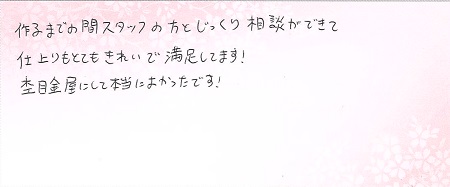 作るまでの間スタッフの方とじっくり相談ができて
仕上りもとてもきれいで満足してます!
杢目金屋にして本当によかったです!